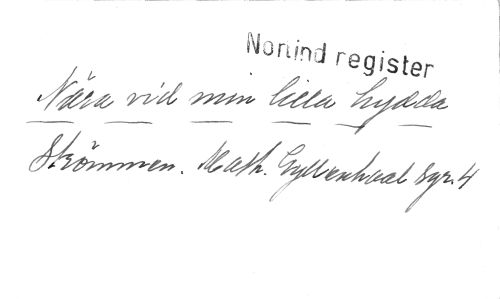 Norlind register
Nära vid min lilla hydda
Strömmen. Math. Gyllenhaal Sgr. 4